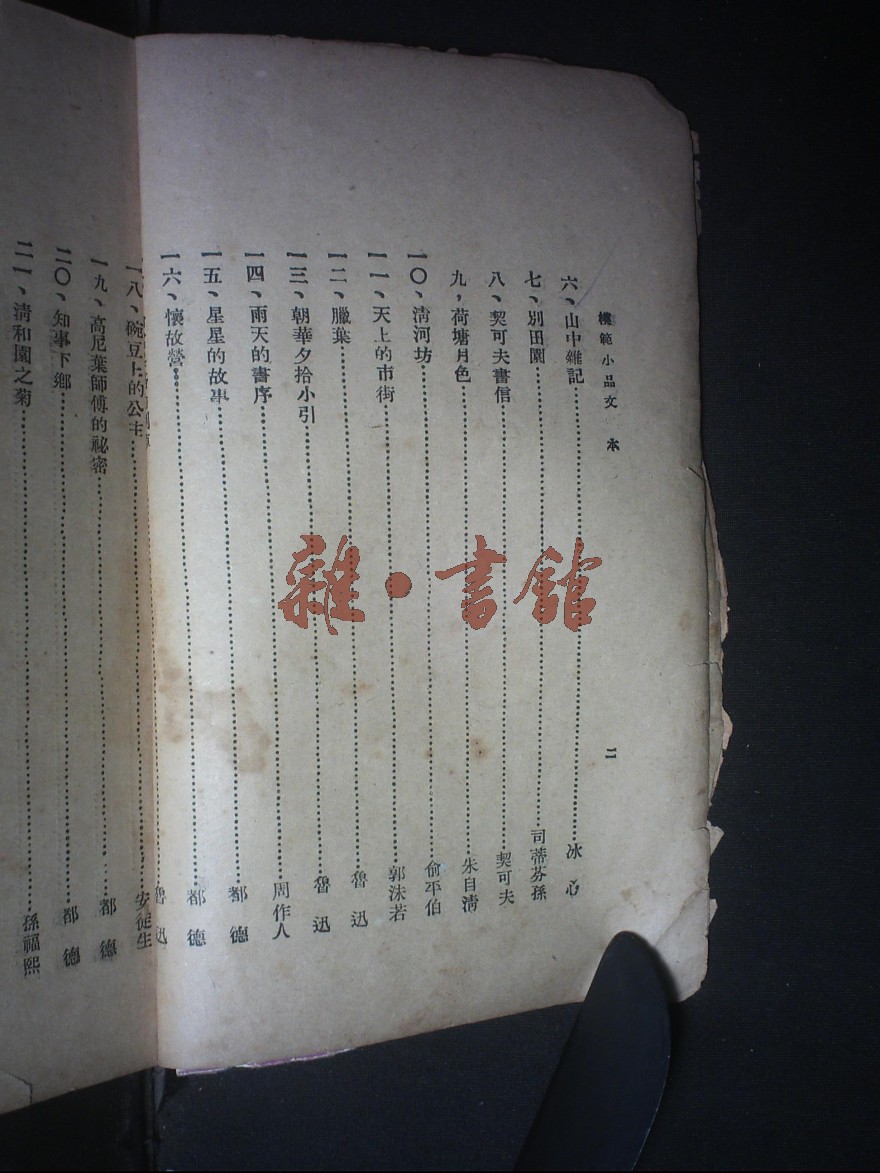 模範小品文本 二
六、山中雜記……冰心
七、別田園……司蒂芬孫
八、契可夫書信……契可夫
九，荷塘月色……朱自清
一〇、清河坊……俞平伯
一一、天上的市街……郭沫若
一二、臘葉……魯迅
一三、朝華夕拾小引……魯迅
一四、雨天的書序……周作人
一五、星星的故事……都德
一六、懷故營……都德
魯迅
一八、碗豆上的公主……安徒生
一九、高尼葉師傅的祕密……都德
二〇、知事下鄉……都德
二一、清和園之菊……孫福熙
雜•書館